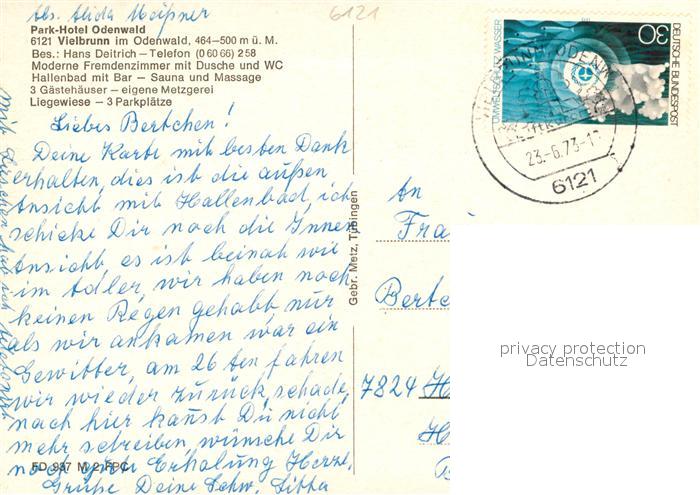 Abs. Alida Meißner
6121
Park-Hotel Odenwald
6121 Vielbrunn im Odenwald, 464–500 m ü. M.
Bes.: Hans Deitrich – Telefon (0 60 66) 2 58
Moderne Fremdenzimmer mit Dusche und WC
Hallenbad mit Bar – Sauna und Massage
3 Gästehäuser – eigene Metzgerei
Liegewiese – 3 Parkplätze
Liebes Bertchen!
Deine Karte mit besten Dank
erhalten, dies ist die außen
Ansicht mit Hallenbad, ich
schicke Dir noch die Innen
Ansicht, es ist beinah wie
im Adler, wir haben noch
keinen Regen gehabt, nur
als wir ankamen war ein
Gewitter, am 26ten fahren
wir wieder zurück, schade,
nach hier kanst Du nicht
mehr schreiben, wünsche Dir
noch gute Erholung Herzl.
Grüße Deine Schw.
FD 937 M 2 FPC
Gebr. Metz, Tübingen
UMWELTSCHUTZ WASSER
30
DEUTSCHE BUNDESPOST
ODENW
23.-6.73-1
6121
An
Fra
Bertc
7824 H
H
B
privacy protection
Datenschutz
mit